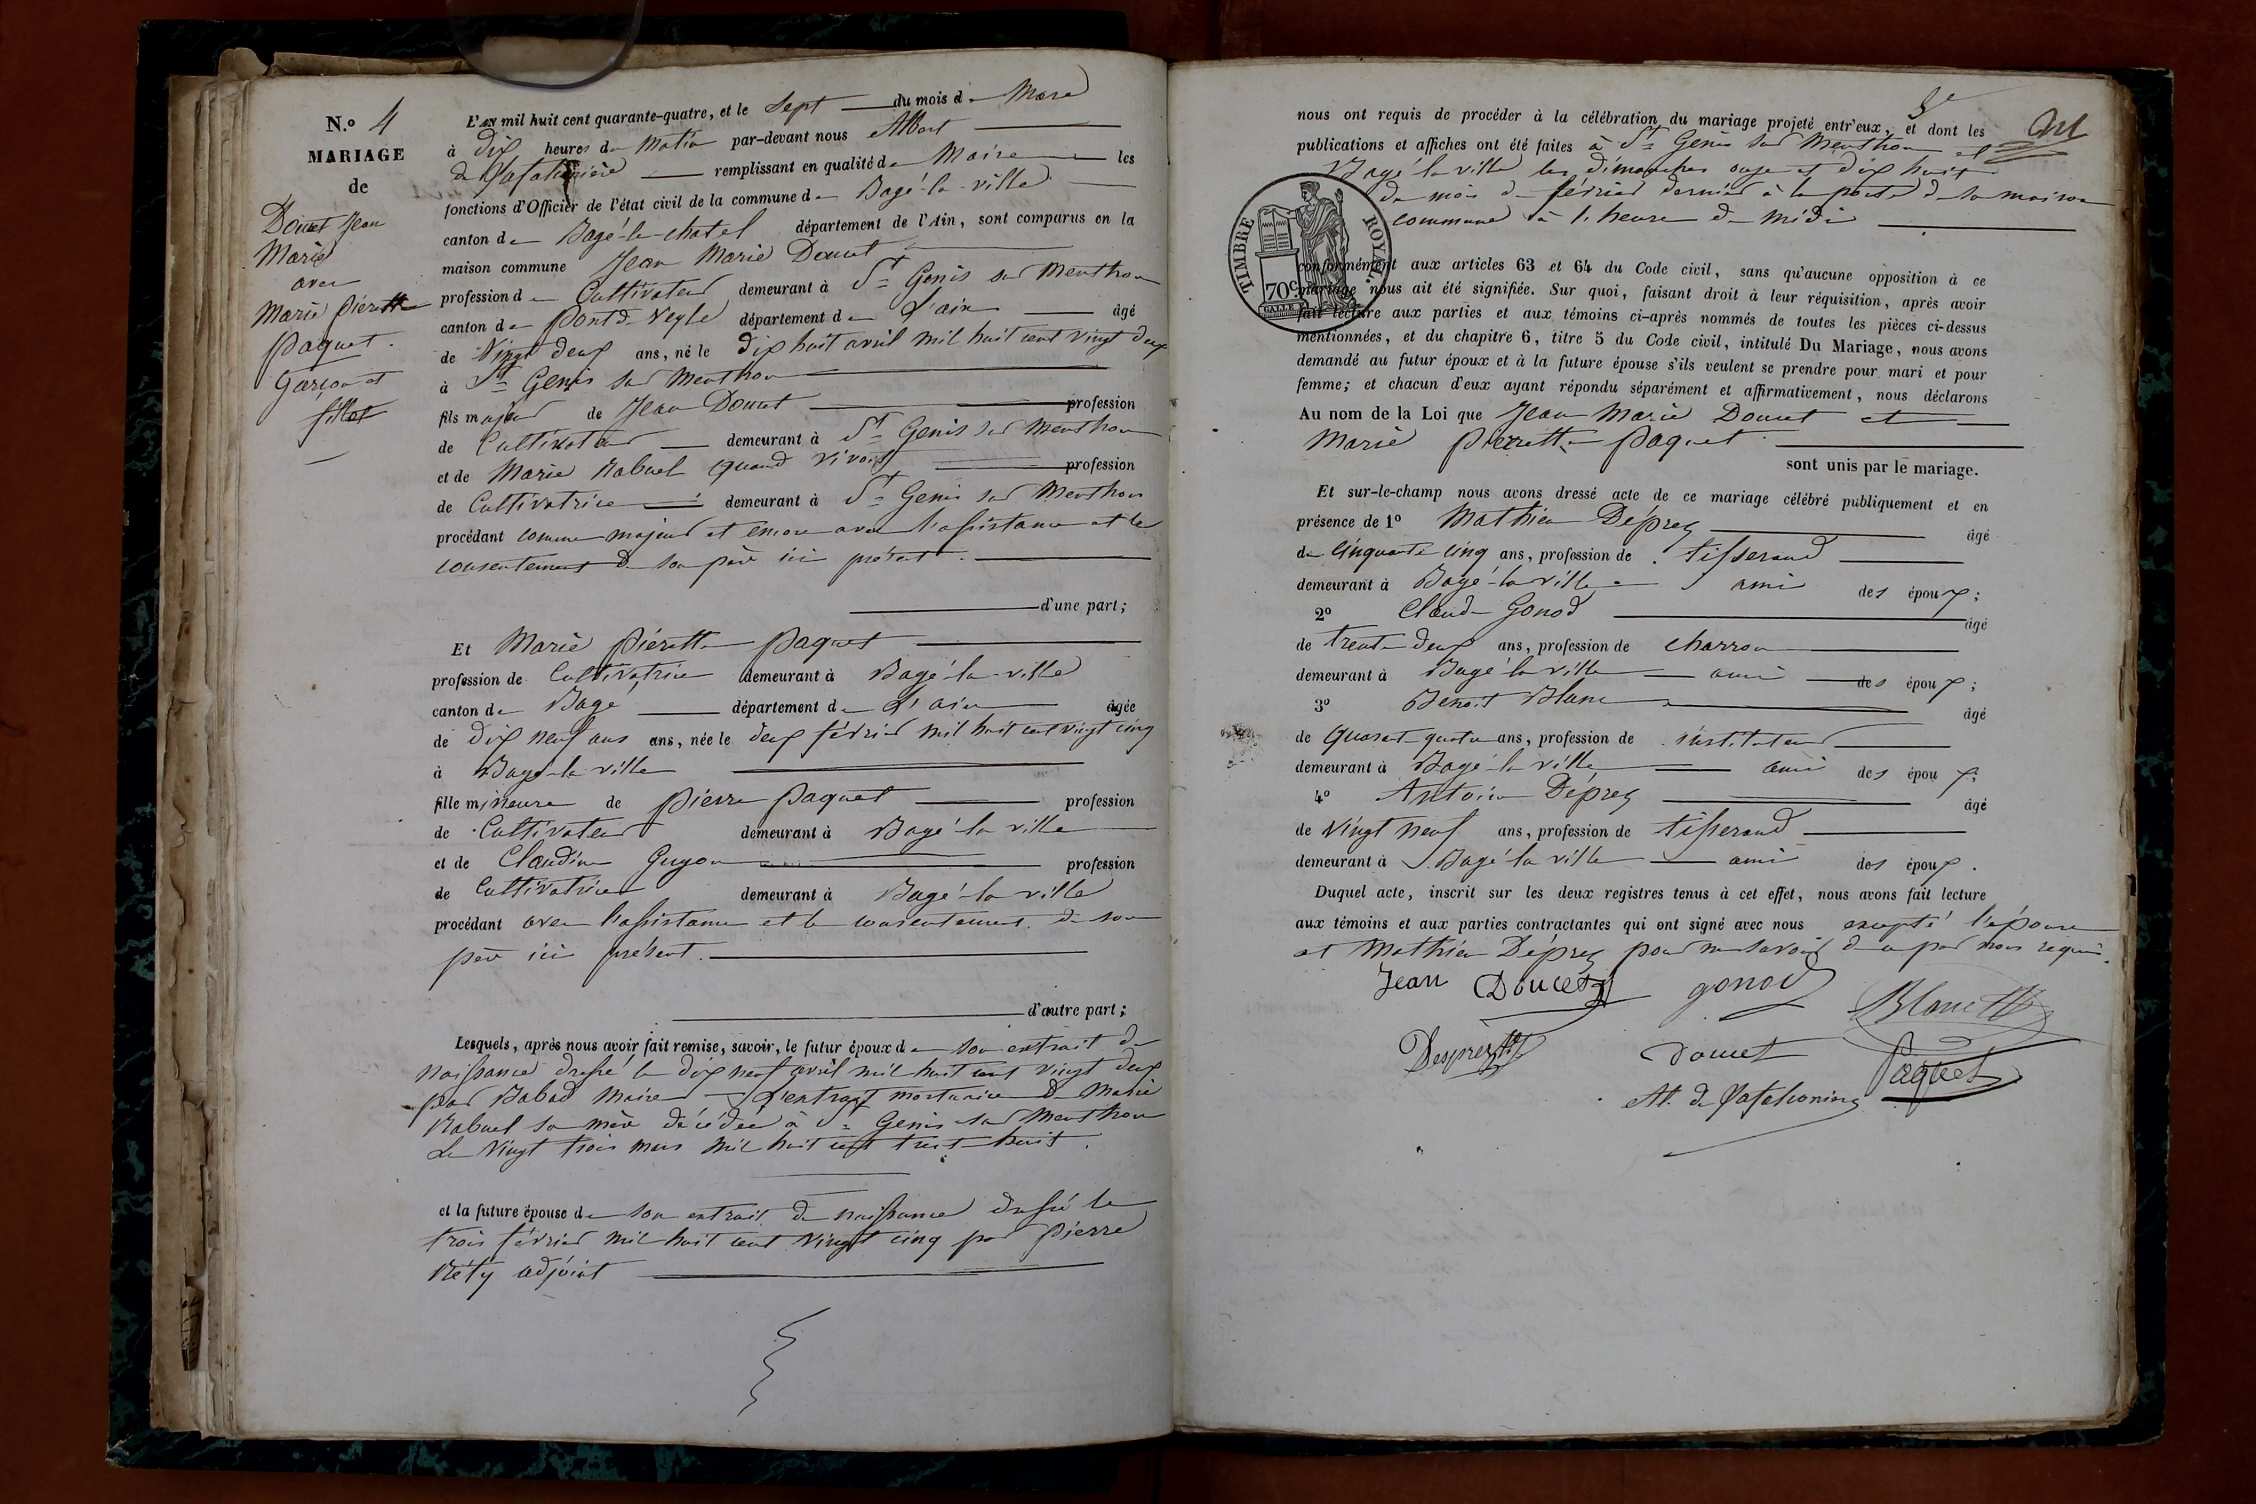 N.º 4
MARIAGE
de
Doucet Jean
Marie
avec
Marie Pierrette
Paquet.
Garçon et
fille
L'AN mil huit cent quarante-quatre, et le Sept du mois de Mars
à dix heures du Matin par-devant nous Albert
de remplissant en qualité de Maire les
fonctions d'Officier de l'état civil de la commune de Bagé-la-ville
canton de Bagé-le-chatel département de l'Ain, sont comparus en la
maison commune Jean Marie Doucet
profession de Cultivateur demeurant à St Genis sur Menthon
canton de Pont de Veyle département de L'ain âgé
de Vingt deux ans, né le dix huit avril mil huit cent vingt deux
à St Genis sur Menthon
fils majeur de Jean Doucet profession
de Cultivateur demeurant à St Genis sur Menthon
et de Marie Rabuel quand vivait profession
de Cultivatrice demeurant à St Genis sur Menthon
procédant comme majeur et encore avec l'assistance et le
consentement de son père ici présent.
d'une part;
Et Marie Pierrette Paquet
profession de Cultivatrice demeurant à Bagé-la-ville
canton de Bagé département de L'ain âgée
de dix neuf ans ans, née le deux février mil huit cent vingt cinq
à Bagé-la-ville
fille mineure de Pierre Paquet profession
de Cultivateur demeurant à Bagé-la-ville
et de Claudine Guyon profession
de Cultivatrice demeurant à Bagé-la-ville
procédant avec l'assistance et le consentement de son
père ici présent.
d'autre part;
Lesquels, après nous avoir fait remise, savoir, le futur époux de son extrait de
naissance dressé le dix neuf avril mil huit cent vingt deux
par Maire L'extrait mortuaire de Marie
Rabuel sa mère décédée à St Genis sur Menthon
Le Vingt trois mars mil huit cent trente huit.
et la future épouse de son extrait de naissance dressé le
trois février mil huit cent vingt cinq par Pierre
Réty adjoint
nous ont requis de procéder à la célébration du mariage projeté entr'eux, et dont les
publications et affiches ont été faites à St Genis sur Menthon et
Bagé-la ville les dimanches onze et dix huit
du mois de février dernier à la porte de la maison
commune à l'heure de midi
TIMBRE ROYAL.
70 c.
conformément aux articles 63 et 64 du Code civil, sans qu'aucune opposition à ce
mariage nous ait été signifiée. Sur quoi, faisant droit à leur réquisition, après avoir
fait lecture aux parties et aux témoins ci-après nommés de toutes les pièces ci-dessus
mentionnées, et du chapitre 6, titre 5 du Code civil, intitulé Du Mariage, nous avons
demandé au futur époux et à la future épouse s'ils veulent se prendre pour mari et pour
femme; et chacun d'eux ayant répondu séparément et affirmativement, nous déclarons
Au nom de la Loi que Jean Marie Doucet et
Marie Pierrette Paquet
sont unis par le mariage.
Et sur-le-champ nous avons dressé acte de ce mariage célébré publiquement et en
présence de 1º Mathieu Déprez âgé
de Cinquante cinq ans, profession de tisserand
demeurant à Bagé-la ville ami des époux;
2º Claude Gonod âgé
de trente deux ans, profession de charron
demeurant à Bagé-la ville ami des époux;
3º Benoit Blanc âgé
de Quarante quatre ans, profession de instituteur
demeurant à Bagé-la ville ami des époux;
4º Antoine Déprez âgé
de vingt neuf ans, profession de tisserand
demeurant à Bagé-la ville ami des époux.
Duquel acte, inscrit sur les deux registres tenus à cet effet, nous avons fait lecture
aux témoins et aux parties contractantes qui ont signé avec nous excepté l'épouse
et Mathieu Déprez pour ne savoir de ce par nous requis.
Jean Doucet gonod Blanc
Desprez doucet Paquet
Al. de